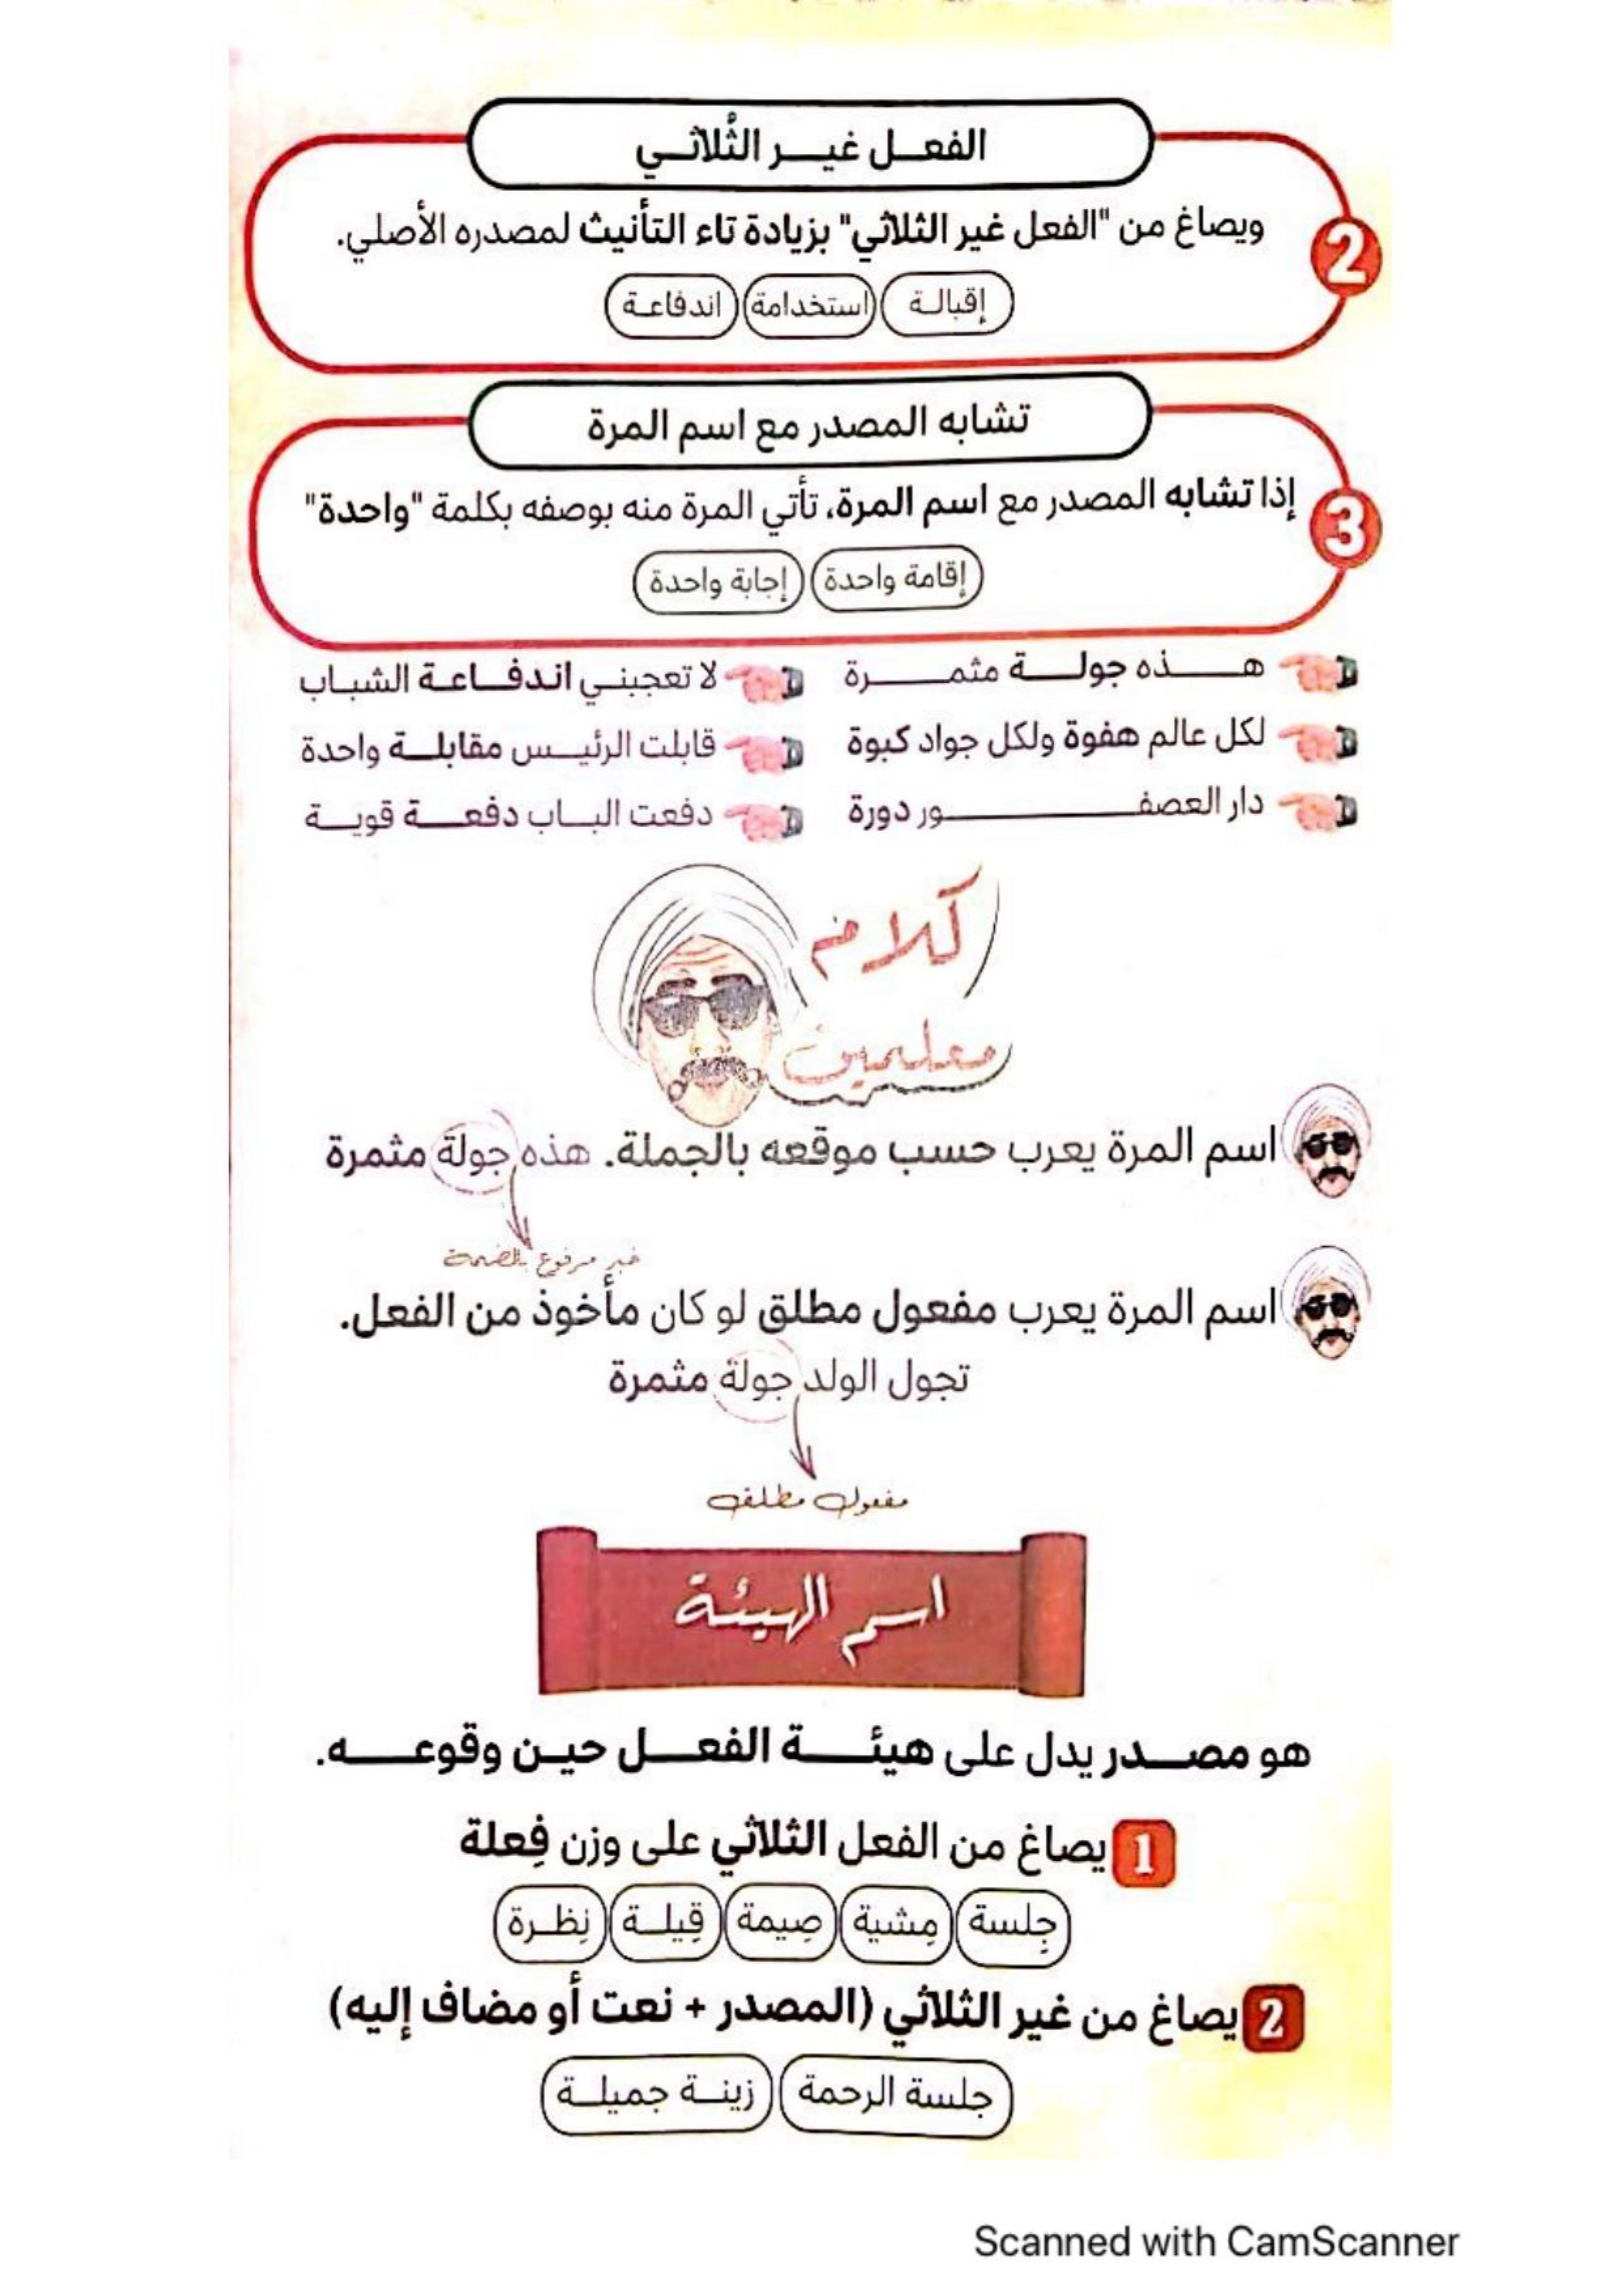 الفعل غير الثُلاثي
2
ويصاغ من "الفعل غير الثلاثي" بزيادة تاء التأنيث لمصدره الأصلي.
إقبالة استخدامة اندفاعة
تشابه المصدر مع اسم المرة
3
إذا تشابه المصدر مع اسم المرة، تأتي المرة منه بوصفه بكلمة "واحدة"
إقامة واحدة إجابة واحدة
هذه جولة مثمرة لا تعجبني اندفاعة الشباب
لكل عالم هفوة ولكل جواد كبوة قابلت الرئيس مقابلة واحدة
دار العصفور دورة دفعت الباب دفعة قوية
كلام
معلمين
اسم المرة يعرب حسب موقعه بالجملة. هذه جولة مثمرة
خبر مرفوع بالضمة
اسم المرة يعرب مفعول مطلق لو كان مأخوذ من الفعل.
تجول الولد جولة مثمرة
مفعول مطلق
اسم الهيئة
هو مصدر يدل على هيئة الفعل حين وقوعه.
1 يصاغ من الفعل الثلاثي على وزن فِعلة
جِلسة مِشية صِيمة قِيلة نِظرة
2 يصاغ من غير الثلاثي (المصدر + نعت أو مضاف إليه)
جلسة الرحمة زينة جميلة
Scanned with CamScanner